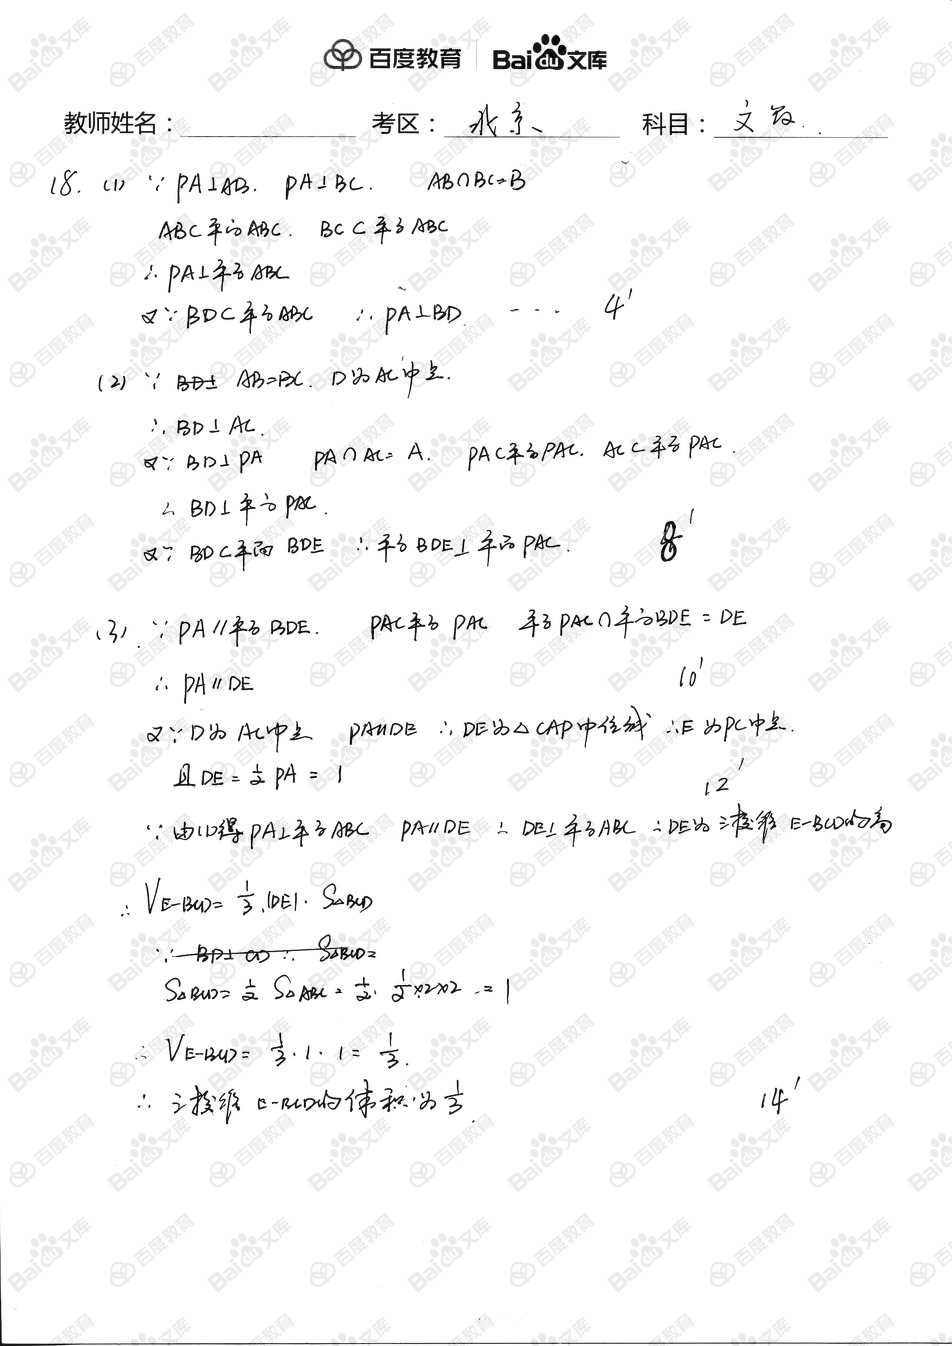 百度教育 Bai文库
教师姓名： 考区： 北京 科目： 文数
18. (1) ∵ PA⊥AB. PA⊥BC. AB∩BC=B
AB⊂平面ABC. BC⊂平面ABC
∴PA⊥平面ABC
又∵BD⊂平面ABC ∴PA⊥BD. ---- 4'
(2) ∵ AB=BC. D为AC中点.
∴BD⊥AC.
又∵BD⊥PA PA∩AC=A. PA⊂平面PAC. AC⊂平面PAC.
∴BD⊥平面PAC.
又∵BD⊂平面BDE ∴平面BDE⊥平面PAC. 8'
(3) ∵PA∥平面BDE. PA⊂平面PAC 平面PAC∩平面BDE=DE
∴PA∥DE 10'
又∵D为AC中点 PA∥DE ∴DE为△CAP中位线 ∴E为PC中点.
且DE=½PA=1 12'
∵由(1)得PA⊥平面ABC PA∥DE ∴DE⊥平面ABC ∴DE为三棱锥E-BCD的高
∴V E-BCD=⅓·|DE|·S△BCD
∵ BD⊥CD ∴ S△BCD=
S△BCD=½S△ABC=½·½×2×2=1
∴V E-BCD=⅓·1·1=⅓.
∴三棱锥E-BCD的体积为⅓. 14'